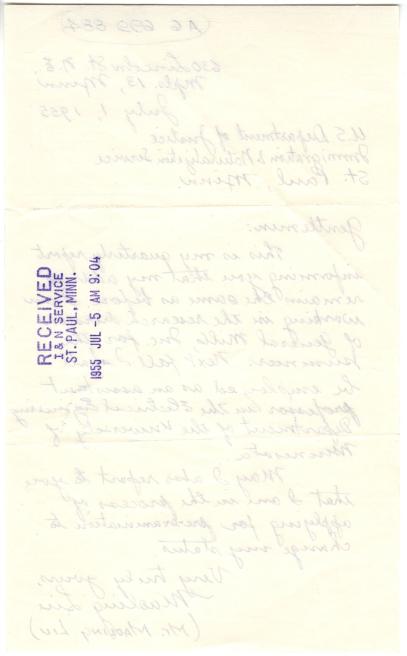 A6 699 884
630 Lincoln St N.E.
Mpls. 13, Minn
July 1, 1955
U.S Department of Justice
Immigration & Naturalization Service
St. Paul, Minn.
Gentlemen:
This is my quarterly report
informing you that my
remain the same as before
working in the research
of General Mills Inc for the
summer. Next fall I
be employed as an assistant
professor in the Electrical Engineering
Department of the University of
Minnesota.
May I also report to you
that I am in the process of
applying for preexamination to
change my status
Very truly yours,
(Mr.
RECEIVED
I & N SERVICE
ST. PAUL, MINN.
1955 JUL -5 AM 9:04